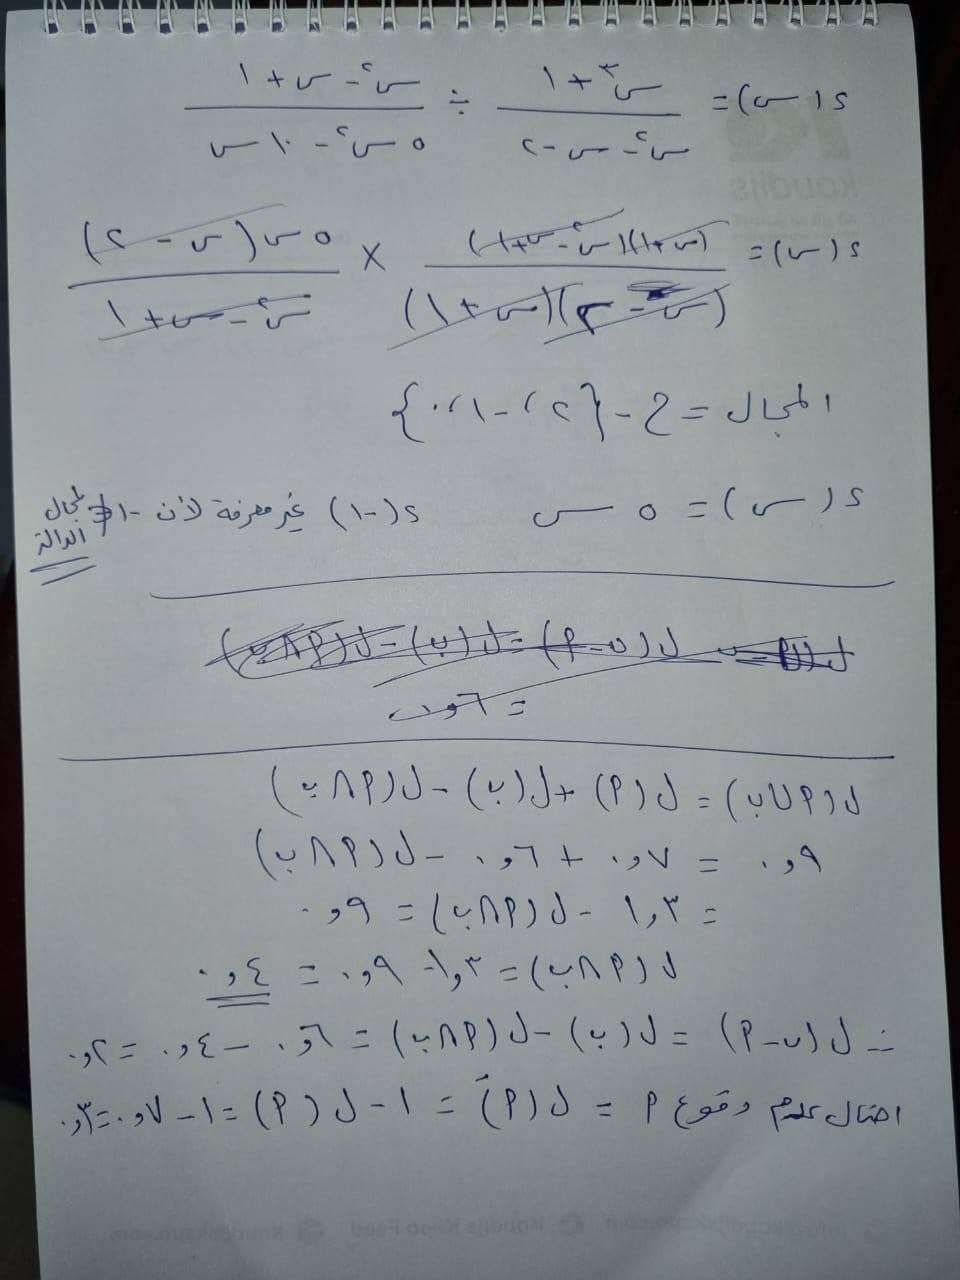 د(س) = (س³ + ١)/(س² - س - ٢) ÷ (س² - س + ١)/(٥س² - ١٠س)
د(س) = (س+١)(س² - س + ١)/(س - ٢)(س + ١) × ٥س(س - ٢)/(س² - س + ١)
المجال = ح - {٢، -١، ٠}
د(س) = ٥س    د(-١) غير معرفة لأن -١ ∉ لمجال الدالة
ل(ب - P) = ل(ب) - ل(P∩ب)
= ٠,٢
ل(P∪ب) = ل(P) + ل(ب) - ل(P∩ب)
٠,٩ = ٠,٧ + ٠,٦ - ل(P∩ب)
= ١,٣ - ل(P∩ب) = ٠,٩
ل(P∩ب) = ١,٣ - ٠,٩ = ٠,٤
∴ ل(ب - P) = ل(ب) - ل(P∩ب) = ٠,٦ - ٠,٤ = ٠,٢
احتمال عدم وقوع P = ل(Ṕ) = ١ - ل(P) = ١ - ٠,٧ = ٠,٣